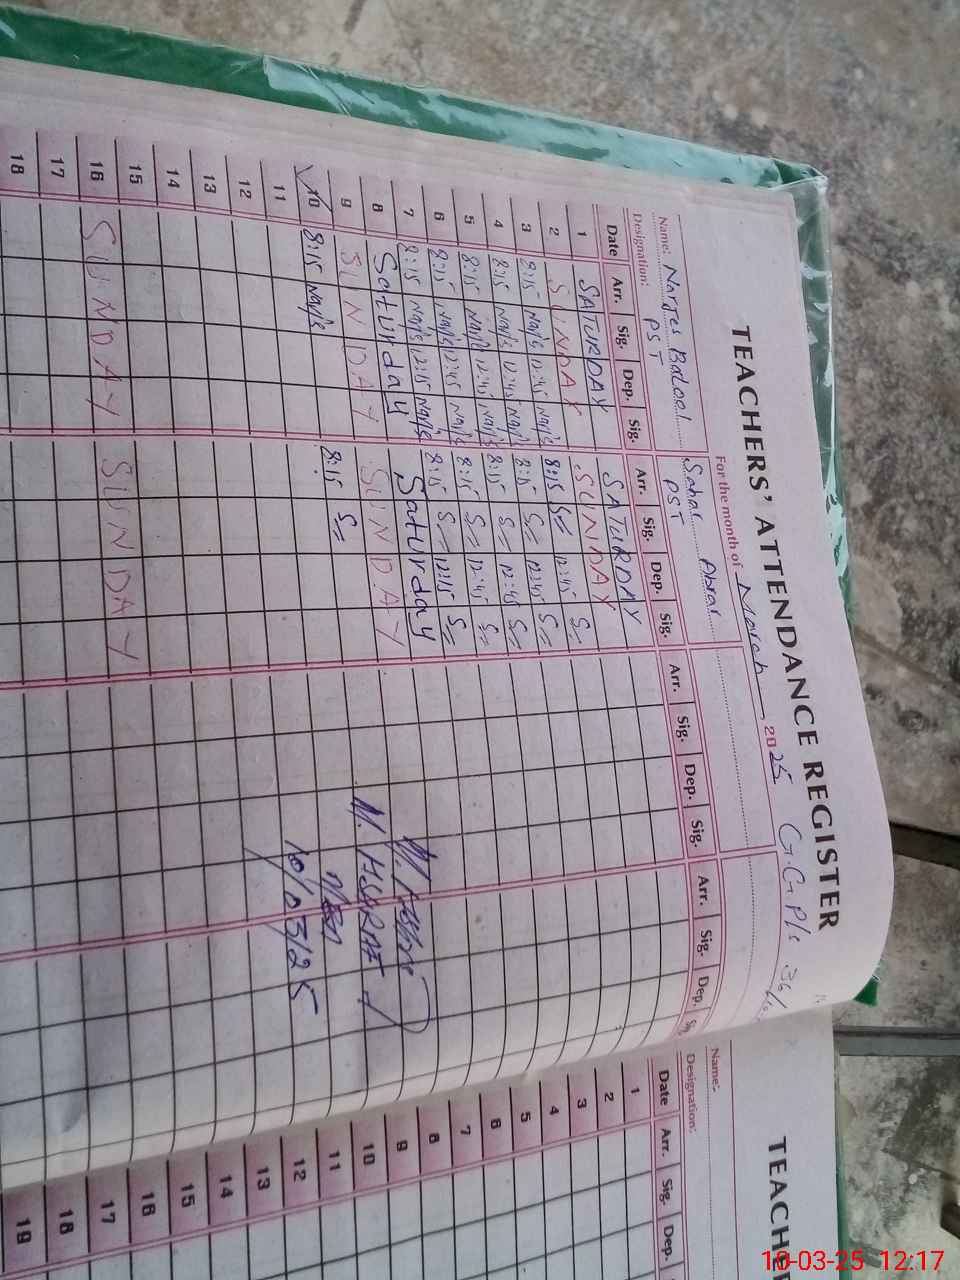 TEACHERS' ATTENDANCE REGISTER
For the month of March 2025 G.G.P/s 36/
Name: Narjes Batool Sahar Abrar
Designation: PST PST
Date Arr. Sig. Dep. Sig. Arr. Sig. Dep. Sig. Arr. Sig. Dep. Sig. Arr. Sig. Dep. Sig.
1 SATURDAY SATURDAY
2 SUNDAY SUNDAY
3 8:15 Narjis 12:45 Narjis 8:15 S= 12:45 S=
4 8:15 Narjis 12:45 Narjis 8:15 S= 12:45 S=
5 8:15 Narjis 12:45 Narjis 8:15 S= 12:45 S=
6 8:15 Narjis 12:45 Narjis 8:15 S= 12:45 S=
7 8:15 Narjis 12:15 Narjis 8:15 S= 12:15 S=
8 Saturday Saturday
9 SUNDAY SUNDAY
10 8:15 Narjis 8:15 S=
11
12
13
14
15
16 SUNDAY SUNDAY
17
18
M. ASHRAF
10/03/25
TEACHE
Name:-
Designation:
Date Arr. Sig. Dep.
1
2
3
4
5
6
7
8
9
10
11
12
13
14
15
16
17
18
19
10-03-25 12:17